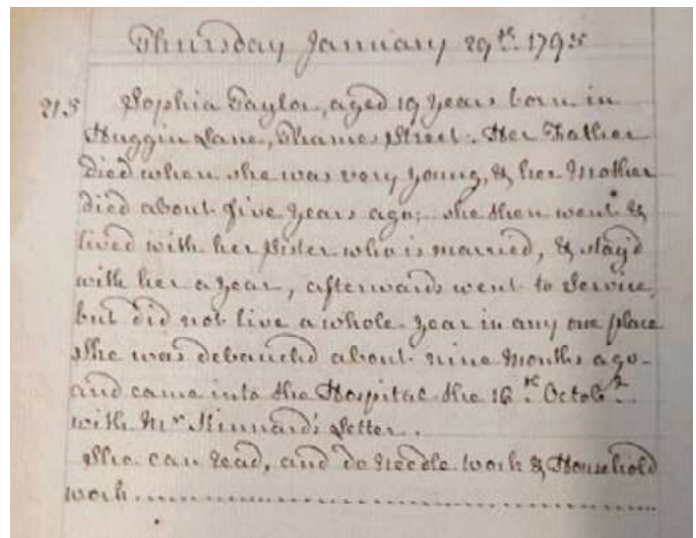 Thursday January 29th. 1795
215 Sophia Taylor, aged 19 Years born in
Huggin Lane, Thames Street. Her Father
died when she was very young, & her Mother
died about five Years ago; she then went &
lived with her Sister who is married, & stay'd
with her a Year, afterwards went to Service,
but did not live a whole Year in any one place
She was debauch'd about nine Months ago
and came into the Hospital the 16th. Octobr.
with Mrs Letter.
She can read, and do needle work & Household
work